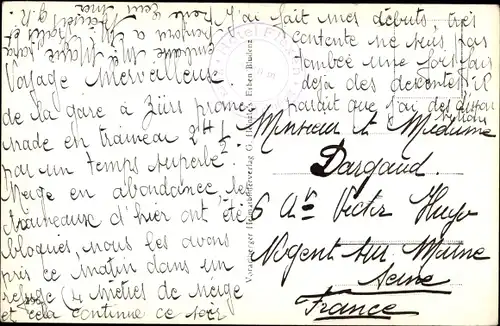 Voyage merveilleux.
de la gare à Zürs prome
nade en traineau 2 H ½
par un temps superbe
Neige en abondance, les
traineaux d'hier ont été
bloqués, nous les avons
pris ce matin dans un
refuge (4 mètres de neige
et cela continue ce soir
J'ai fait mes débuts, très
contente ne suis pas
tombée une fois j'ai
déjà des descentes il
parait que j'ai des dispo
sitions
Monsieur et Madame
Dargaud.
6 Av Victor Hugo
Nogent sur Marne
Seine
France
Vorarlberger Heimatbilderverlag G. Heinzle's Erben Bludenz